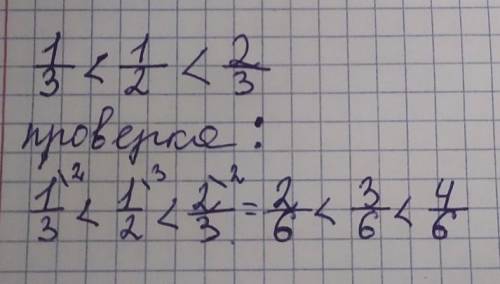 1/3 < 1/2 < 2/3
проверка:
1\2/3 < 1\3/2 < 2\2/3 = 2/6 < 3/6 < 4/6